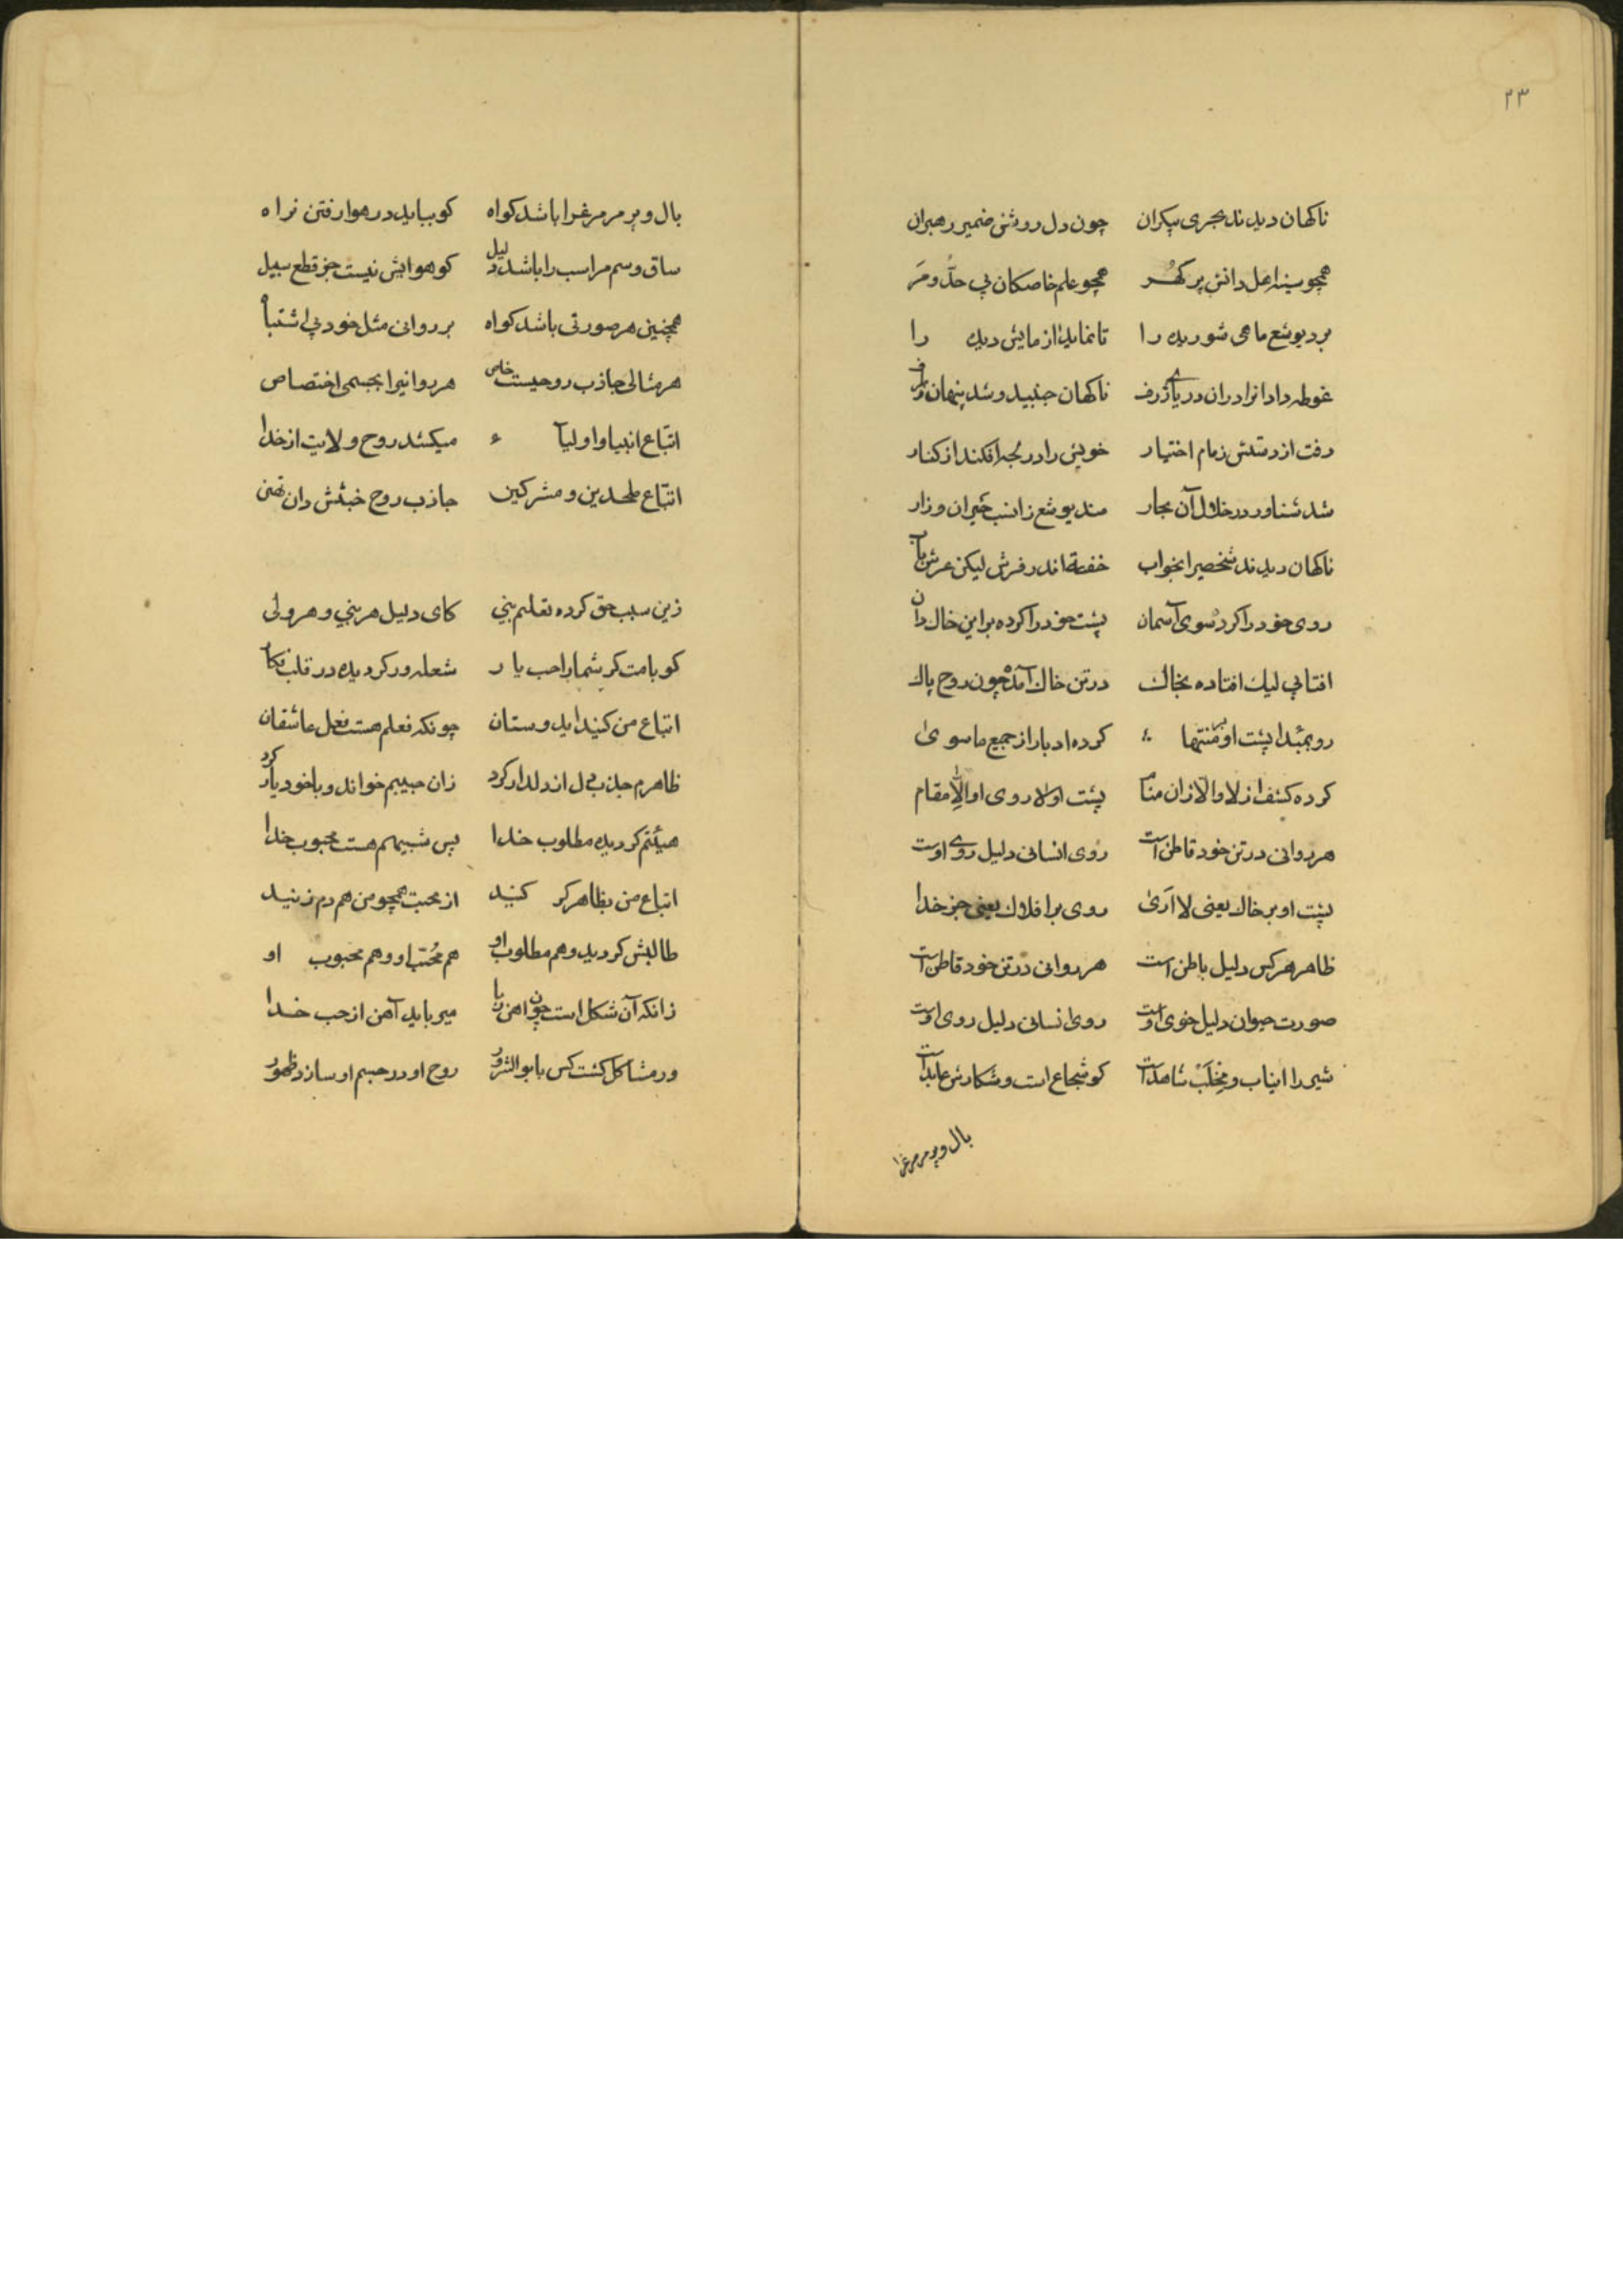 ۲۳
ناکهان دیدند بحری بیکران چون دل روشن ضمیر رهبران
همچو سینه اهل دانش پر کهر همچو علم خاصکان بی حدّ و مَر
برد یوشع ماهی شوریده را تا نماید ازمایش دیده را
غوطه داد انرا دران دریای ژرف ناکهان جنبید و شد پنهان
رفت از دستش زمام اختیار خویش را در لجه افکند از کنار
شد شناور در خلال آن بحار مند یوشع زانسب حَیران و زار
ناکهان دیدند شخصیرا بخواب خفته اندر فرش لیکن عرش یاب
روی خود را کرد سوی آسمان پشت خود را کرده بر این خاکدان
افتابی لیك افتاده بخاك در تن خاك آمده چون روح پاك
رو بمبدا پشت او بر منتها کرده ادبار از جمیع ماسوی
کرده کشف از لا و الّا زان منام پشت او لا روی او الّا مقام
هر روانی در تن خود قاطن است روی انسانی دلیل روی اوست
پشت او بر خاك یعنی لا اَرَیٰ روی بر افلاك یعنی جز خدا
ظاهر هر کس دلیل باطن است هر روانی در تن خود قاطن است
صورت حیوان دلیل خوی اوست روی انسانی دلیل روی اوست
شیر را انیاب و مِخلَبْ شاهد است کو شجاع است و شکارش عاید است
بال و پر مر مرغرا
بال و پر مر مرغرا باشد کواه کو بباید در هوا رفتن براه
ساق و سم مر اسب را باشد دلیل کو هوایش نیست جز قطع سبیل
همچنین هر صورتی باشد کواه بر روانی مثل خود بی اشتباه
هر مثالی جاذب روحیست خاص هر روانیرا بجسمی اختصاص
اتّباع انبیا و اولیآء میکشد روح ولایت از خدا
اتّباع ملحدین و مشرکین جاذب روح خبثش دان
زین سبب حق کرده تعلیم نبی کای دلیل هر نبی و هر ولی
کو بامت کر شما را حب یار شعله ور کردیده در قلب
اتباع من کنید ایدوستان چونکه فعلم هست فعل عاشقان
ظاهرم جذب دل از دلدار کرد زان حبیبم خواند و با خود یار کرد
هیئتم کردیده مطلوب خدا پس شبیهم هست محبوب خدا
اتباع من بظاهر کر کنید از محبت همچو من هم دم زنید
طالبش کردید و هم مطلوب او هم مُحبّ او و هم محبوب او
زانکه آن شکل است چون اهن ربا میرباید آهن از حب خدا
ور مشاکل کشت کس با بو الشرور روح او در جسم او سازد ظهور